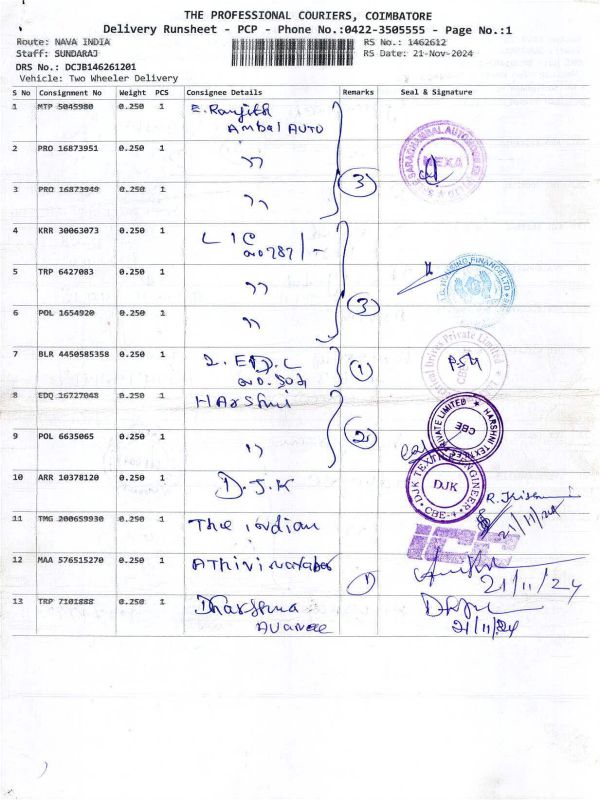 THE PROFESSIONAL COURIERS, COIMBATORE
Delivery Runsheet - PCP - Phone No.:0422-3505555 - Page No.:1
Route: NAVA INDIA RS No.: 1462612
Staff: SUNDARAJ RS Date: 21-Nov-2024
DRS No.: DCJB146261201
Vehicle: Two Wheeler Delivery
S No Consignment No Weight PCS Consignee Details Remarks Seal & Signature
1 MTP 5045980 0.250 1 E. Ranjith
Ambal AUTO
2 PRO 16873951 0.250 1 ,,
3 PRO 16873949 0.250 1 ,, 3
NEXA
4 KRR 30063073 0.250 1 LIC
5 TRP 6427083 0.250 1 ,,
6 POL 1654920 0.250 1 ,, 3
7 BLR 4450585358 0.250 1 1
8 EDQ 16727048 0.250 1 Harshni
PRIVATE LIMITED ★ HARSHNI TEXTILES
CBE
9 POL 6635065 0.250 1 ,, 2
10 ARR 10378120 0.250 1 D.J.K
DJK TEXTILE ENGINEER
DJK
CBE-4
21/11/24
11 TMG 200659930 0.250 1 The indian
12 MAA 576515270 0.250 1 1
21/11/24
13 TRP 7101888 0.250 1
21/11/24